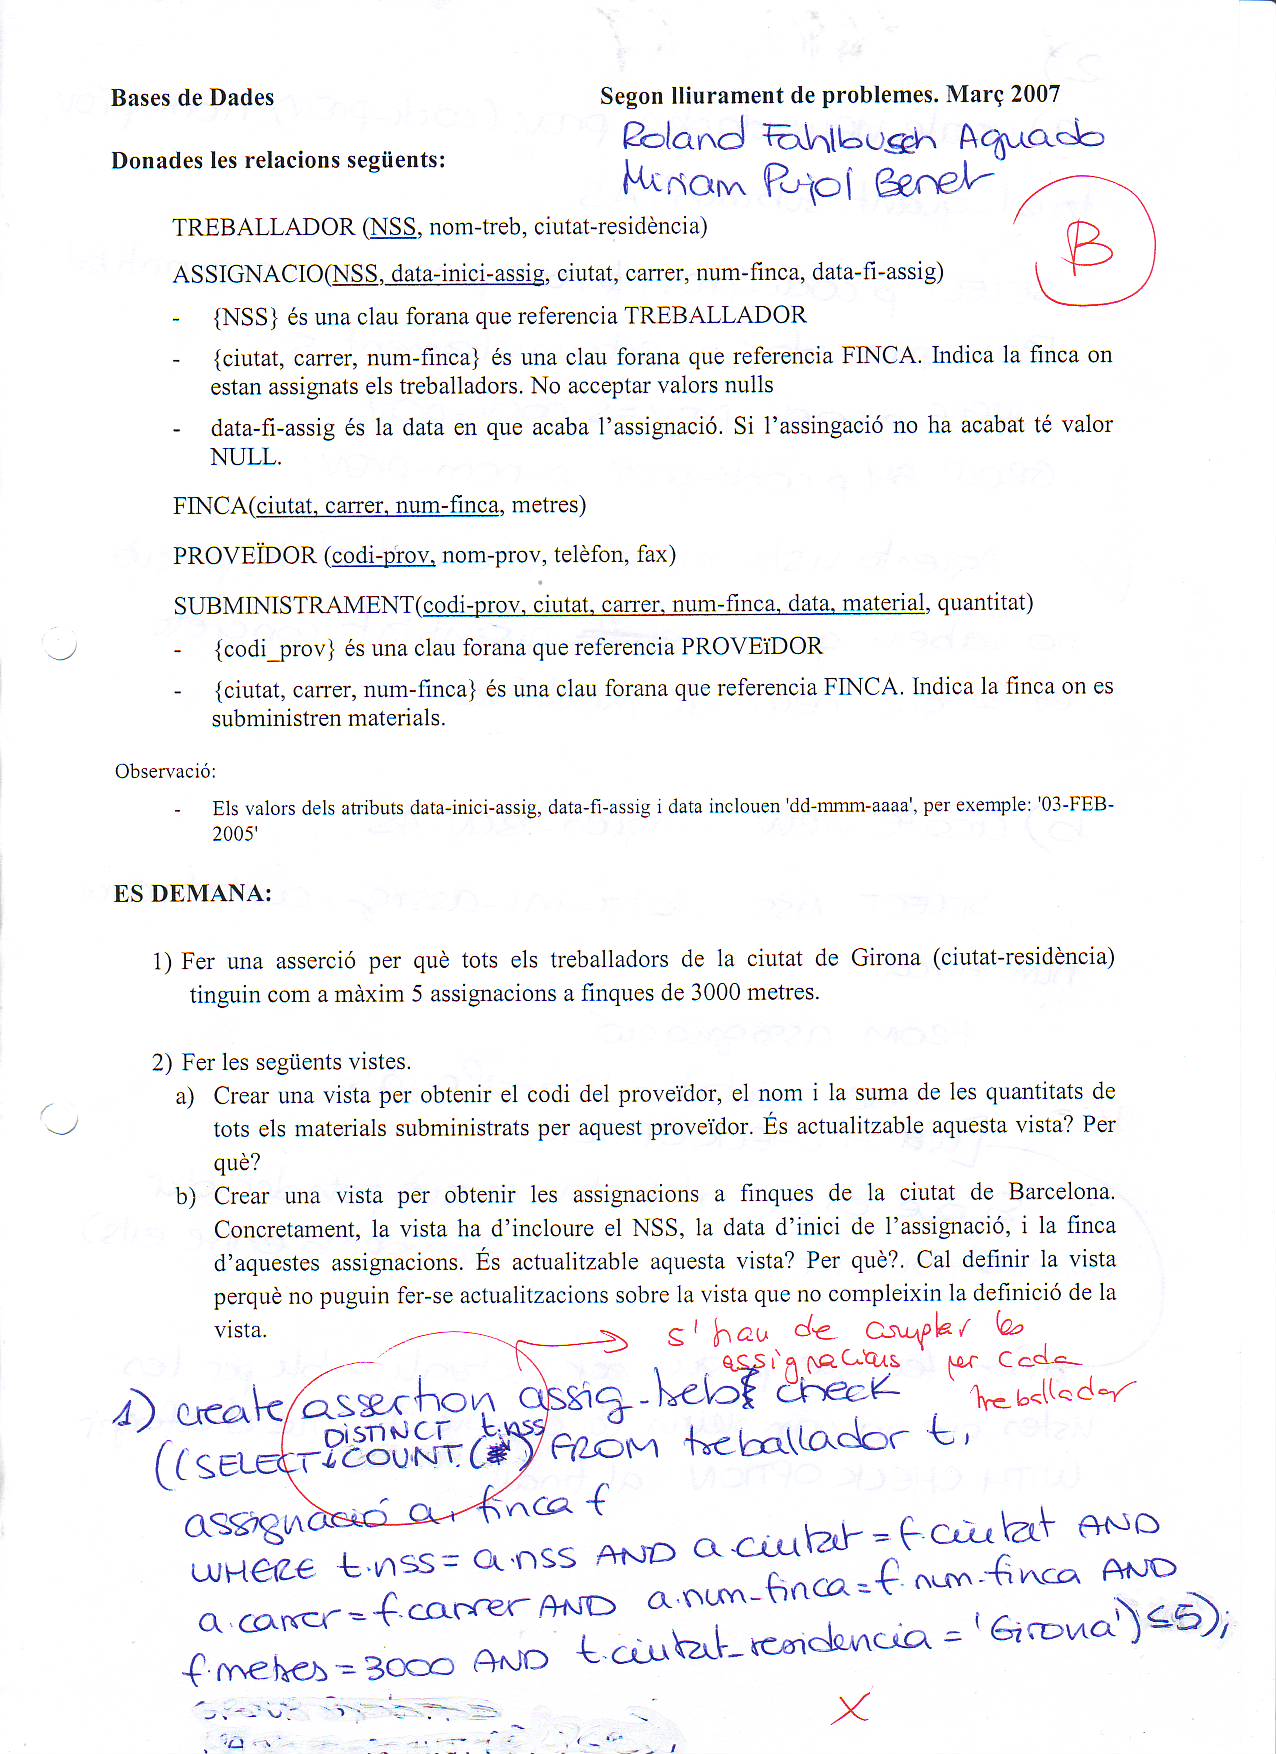 Bases de Dades Segon lliurament de problemes. Març 2007
Roland Fahlbusch Aguado
Donades les relacions següents:
Miriam Pujol Benet
B
TREBALLADOR (NSS, nom-treb, ciutat-residència)
ASSIGNACIO(NSS, data-inici-assig, ciutat, carrer, num-finca, data-fi-assig)
- {NSS} és una clau forana que referencia TREBALLADOR
- {ciutat, carrer, num-finca} és una clau forana que referencia FINCA. Indica la finca on
estan assignats els treballadors. No acceptar valors nulls
- data-fi-assig és la data en que acaba l'assignació. Si l'assingació no ha acabat té valor
NULL.
FINCA(ciutat, carrer, num-finca, metres)
PROVEÏDOR (codi-prov, nom-prov, telèfon, fax)
SUBMINISTRAMENT(codi-prov, ciutat, carrer, num-finca, data, material, quantitat)
- {codi_prov} és una clau forana que referencia PROVEïDOR
- {ciutat, carrer, num-finca} és una clau forana que referencia FINCA. Indica la finca on es
subministren materials.
Observació:
- Els valors dels atributs data-inici-assig, data-fi-assig i data inclouen 'dd-mmm-aaaa', per exemple: '03-FEB-
2005'
ES DEMANA:
1) Fer una asserció per què tots els treballadors de la ciutat de Girona (ciutat-residència)
tinguin com a màxim 5 assignacions a finques de 3000 metres.
2) Fer les següents vistes.
a) Crear una vista per obtenir el codi del proveïdor, el nom i la suma de les quantitats de
tots els materials subministrats per aquest proveïdor. És actualitzable aquesta vista? Per
què?
b) Crear una vista per obtenir les assignacions a finques de la ciutat de Barcelona.
Concretament, la vista ha d'incloure el NSS, la data d'inici de l'assignació, i la finca
d'aquestes assignacions. És actualitzable aquesta vista? Per què?. Cal definir la vista
perquè no puguin fer-se actualitzacions sobre la vista que no compleixin la definició de la
vista.
s'han de comptar les
assignacions per cada
treballador
1) create assertion assig-treb check
DISTINCT t.nss
((SELECT COUNT(*) FROM treballador t,
assignació a, finca f
WHERE t.nss = a.nss AND a.ciutat = f.ciutat AND
a.carrer = f.carrer AND a.num-finca = f.num-finca AND
f.metres = 3000 AND t.ciutat-residencia = 'Girona') ≤ 5);
X